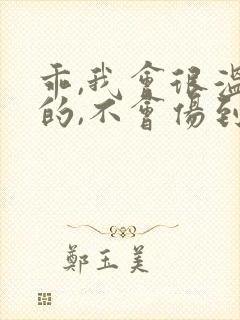 乖,我會很溫
的,不會傷到
鄭玉美